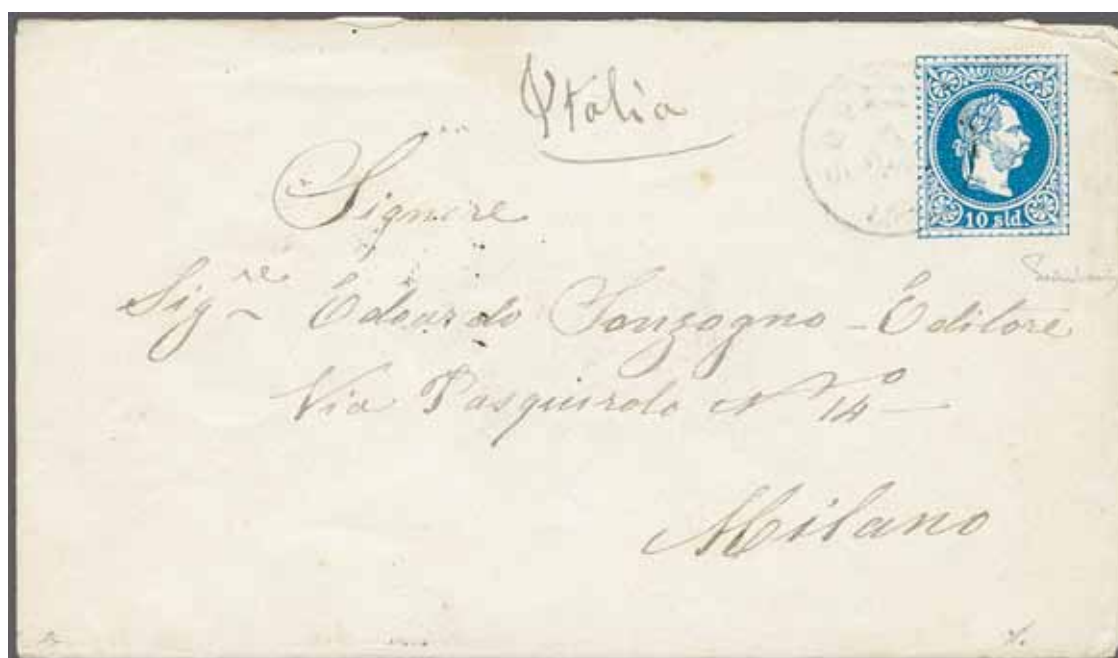 Italia
10 sld.
Signore
Sig.re Edoardo Sonzogno - Editore
Via Pasquirolo No 14
Milano